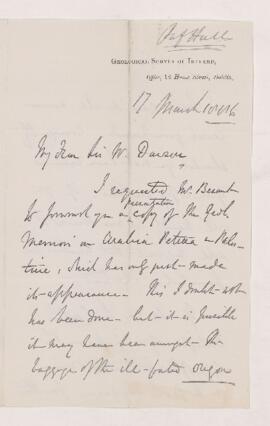 Prof Hull
GEOLOGICAL SURVEY OF IRELAND,
Office, 14 Hume Street, Dublin,
17 March 1886
My Dear Sir W. Dawson
I requested Mr. Besant
to forward you a presentation copy of the Geol.
Memoir on Arabia Petræa & Pales-
tine, which has only just made
its appearance. This I doubt not
has been done - but it is possible
it may have been amongst the
baggage of the ill-fated Oregon